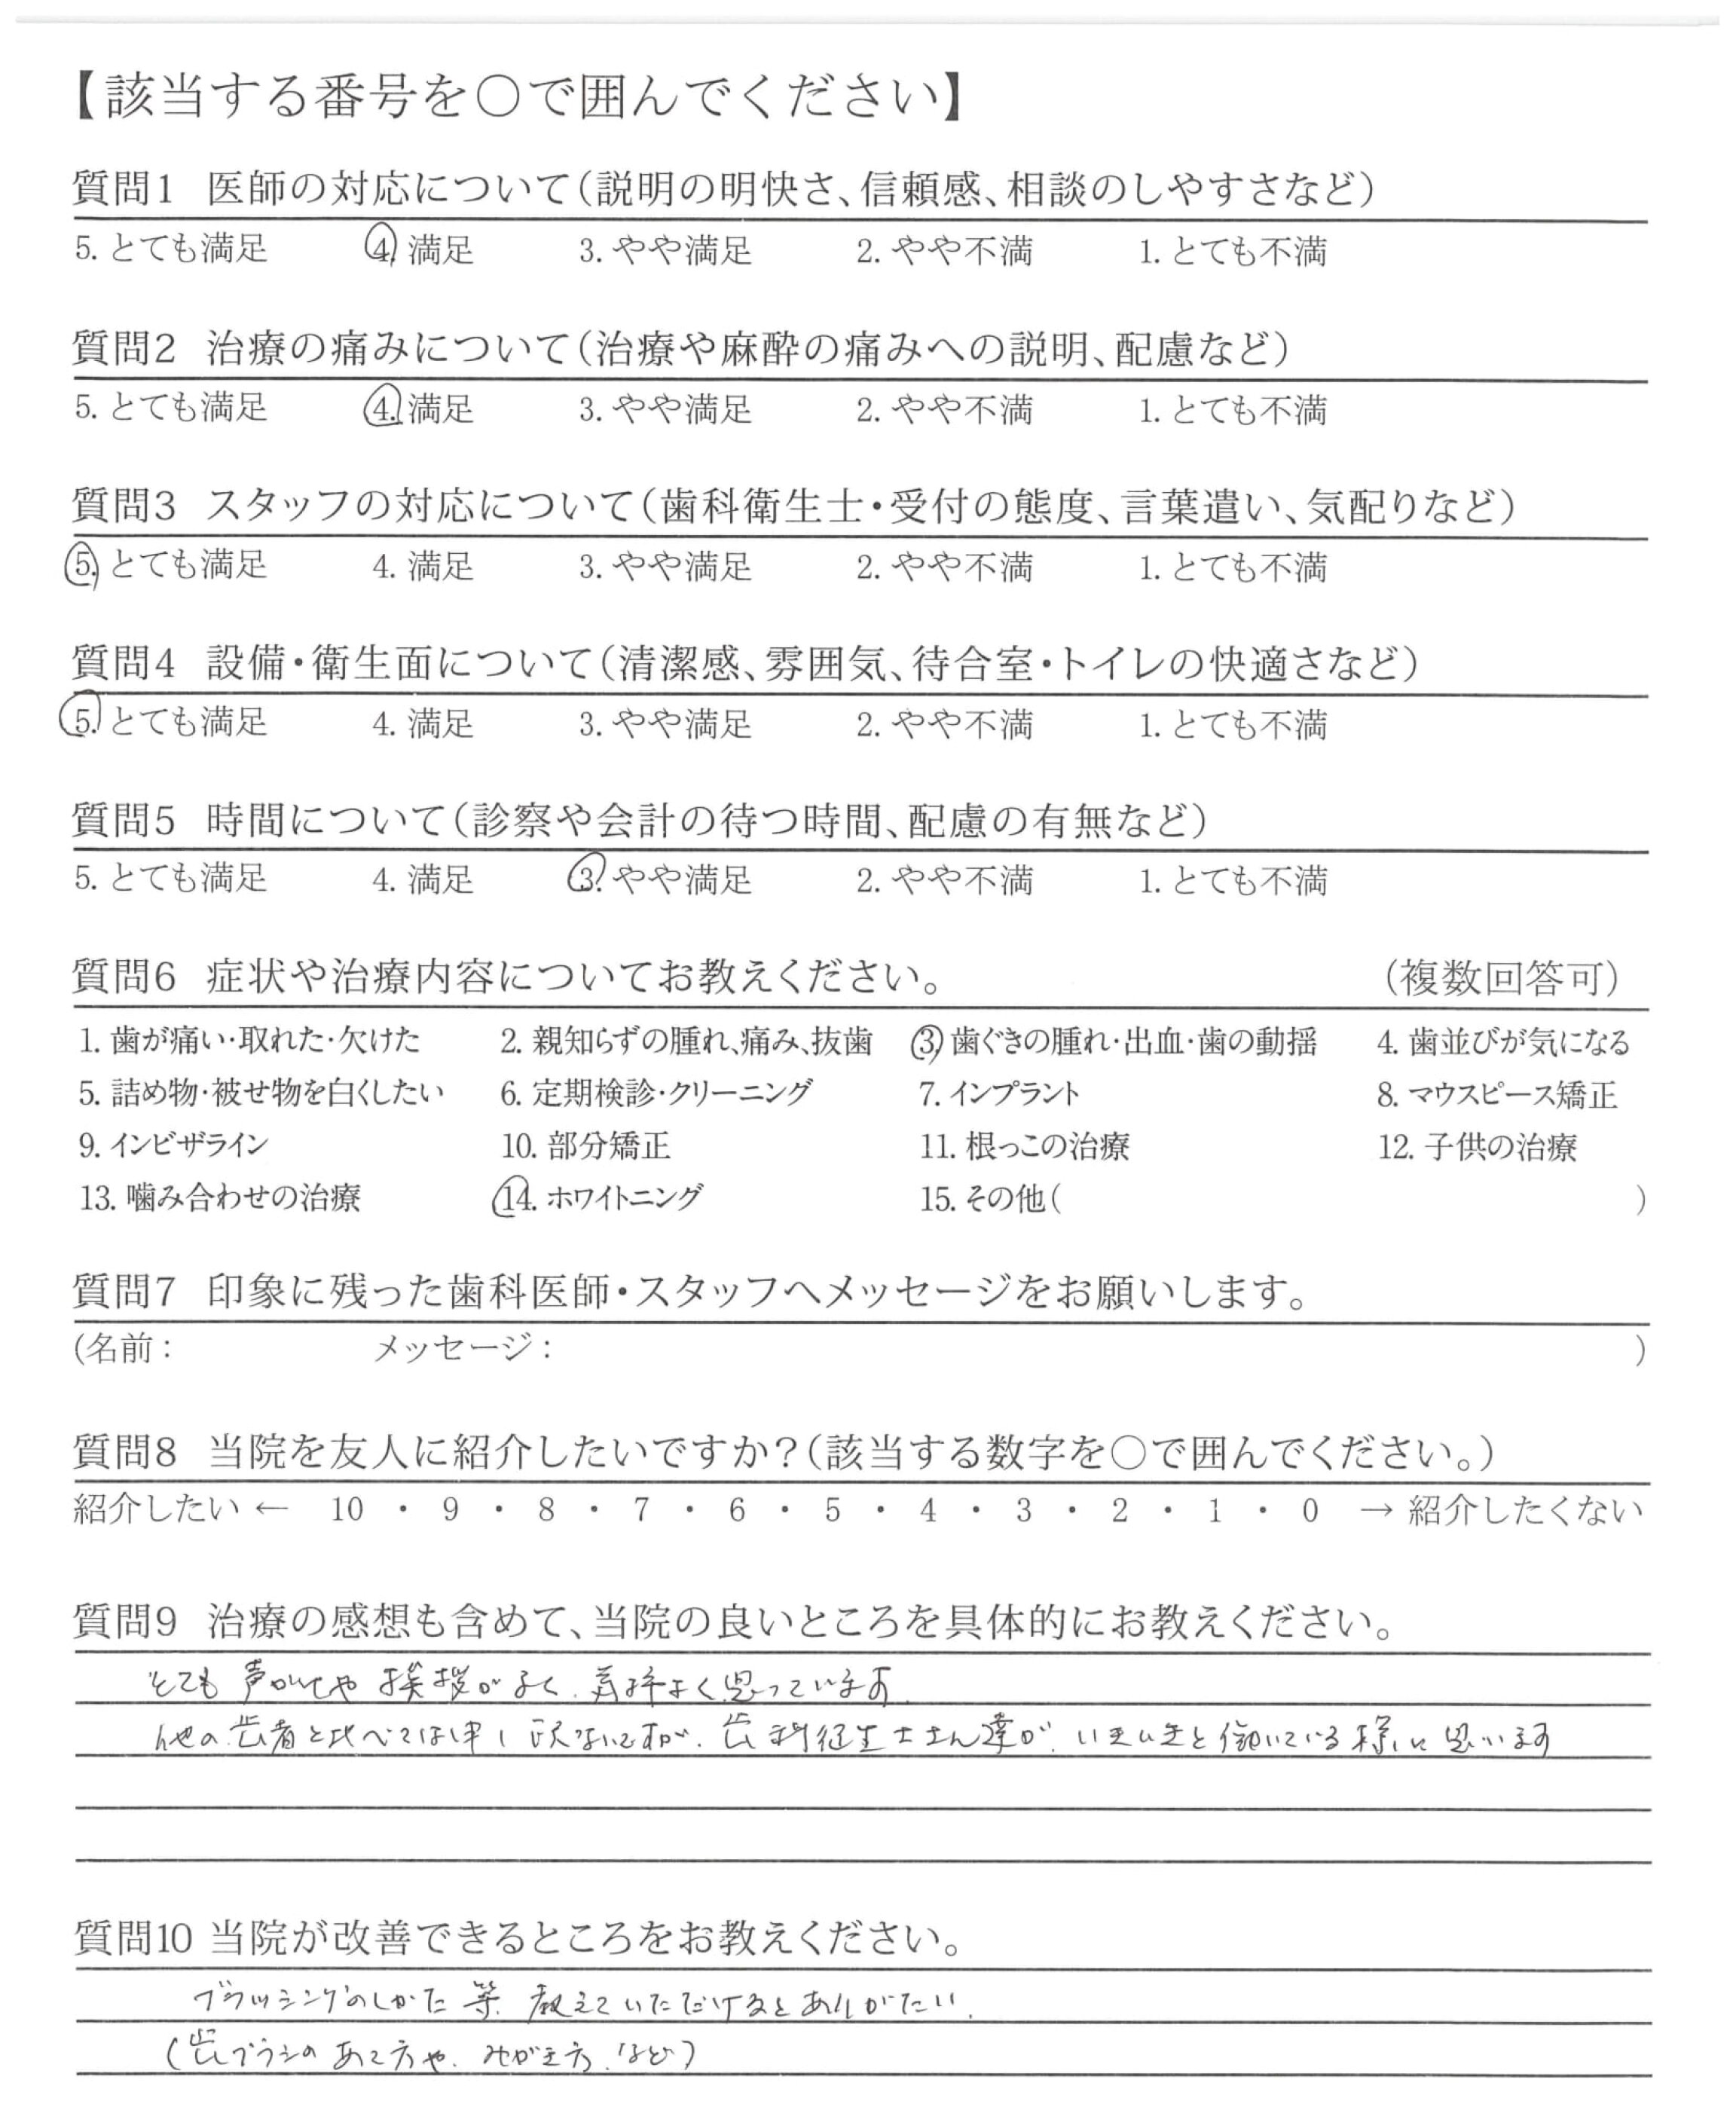 【該当する番号を○で囲んでください】
質問1 医師の対応について(説明の明快さ、信頼感、相談のしやすさなど)
5. とても満足 4. 満足 3. やや満足 2. やや不満 1. とても不満
質問2 治療の痛みについて(治療や麻酔の痛みへの説明、配慮など)
5. とても満足 4. 満足 3. やや満足 2. やや不満 1. とても不満
質問3 スタッフの対応について(歯科衛生士・受付の態度、言葉遣い、気配りなど)
5. とても満足 4. 満足 3. やや満足 2. やや不満 1. とても不満
質問4 設備・衛生面について(清潔感、雰囲気、待合室・トイレの快適さなど)
5. とても満足 4. 満足 3. やや満足 2. やや不満 1. とても不満
質問5 時間について(診察や会計の待つ時間、配慮の有無など)
5. とても満足 4. 満足 3. やや満足 2. やや不満 1. とても不満
質問6 症状や治療内容についてお教えください。 (複数回答可)
1. 歯が痛い・取れた・欠けた 2. 親知らずの腫れ、痛み、抜歯 3. 歯ぐきの腫れ・出血・歯の動揺 4. 歯並びが気になる
5. 詰め物・被せ物を白くしたい 6. 定期検診・クリーニング 7. インプラント 8. マウスピース矯正
9. インビザライン 10. 部分矯正 11. 根っこの治療 12. 子供の治療
13. 噛み合わせの治療 14. ホワイトニング 15. その他( )
質問7 印象に残った歯科医師・スタッフへメッセージをお願いします。
(名前: メッセージ: )
質問8 当院を友人に紹介したいですか?(該当する数字を○で囲んでください。)
紹介したい ← 10 ・ 9 ・ 8 ・ 7 ・ 6 ・ 5 ・ 4 ・ 3 ・ 2 ・ 1 ・ 0 → 紹介したくない
質問9 治療の感想も含めて、当院の良いところを具体的にお教えください。
とても 声かけや 挨拶がよく、気持よく思っています
他の歯者と比べては申し訳ないですが、歯科衛生士さん達が、いきいきと働いている様に思います
質問10 当院が改善できるところをお教えください。
ブラッシングのしかた 等、教えていただけるとありがたい、
(歯ブラシの あて方や、みがき方、など)